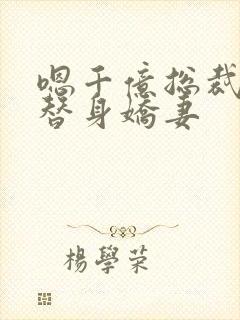 嗯千億総裁
替身嬌妻
楊學荣